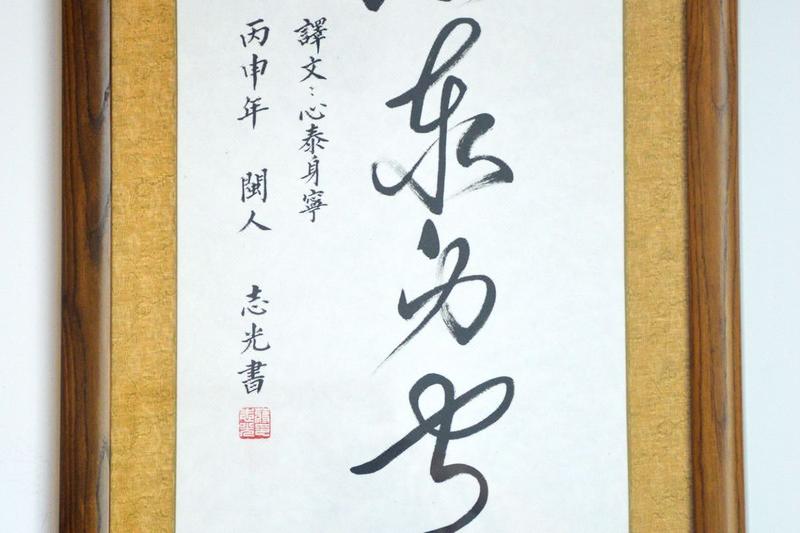 泰身寧
譯文：心泰身寧
丙申年 閩人 志光書